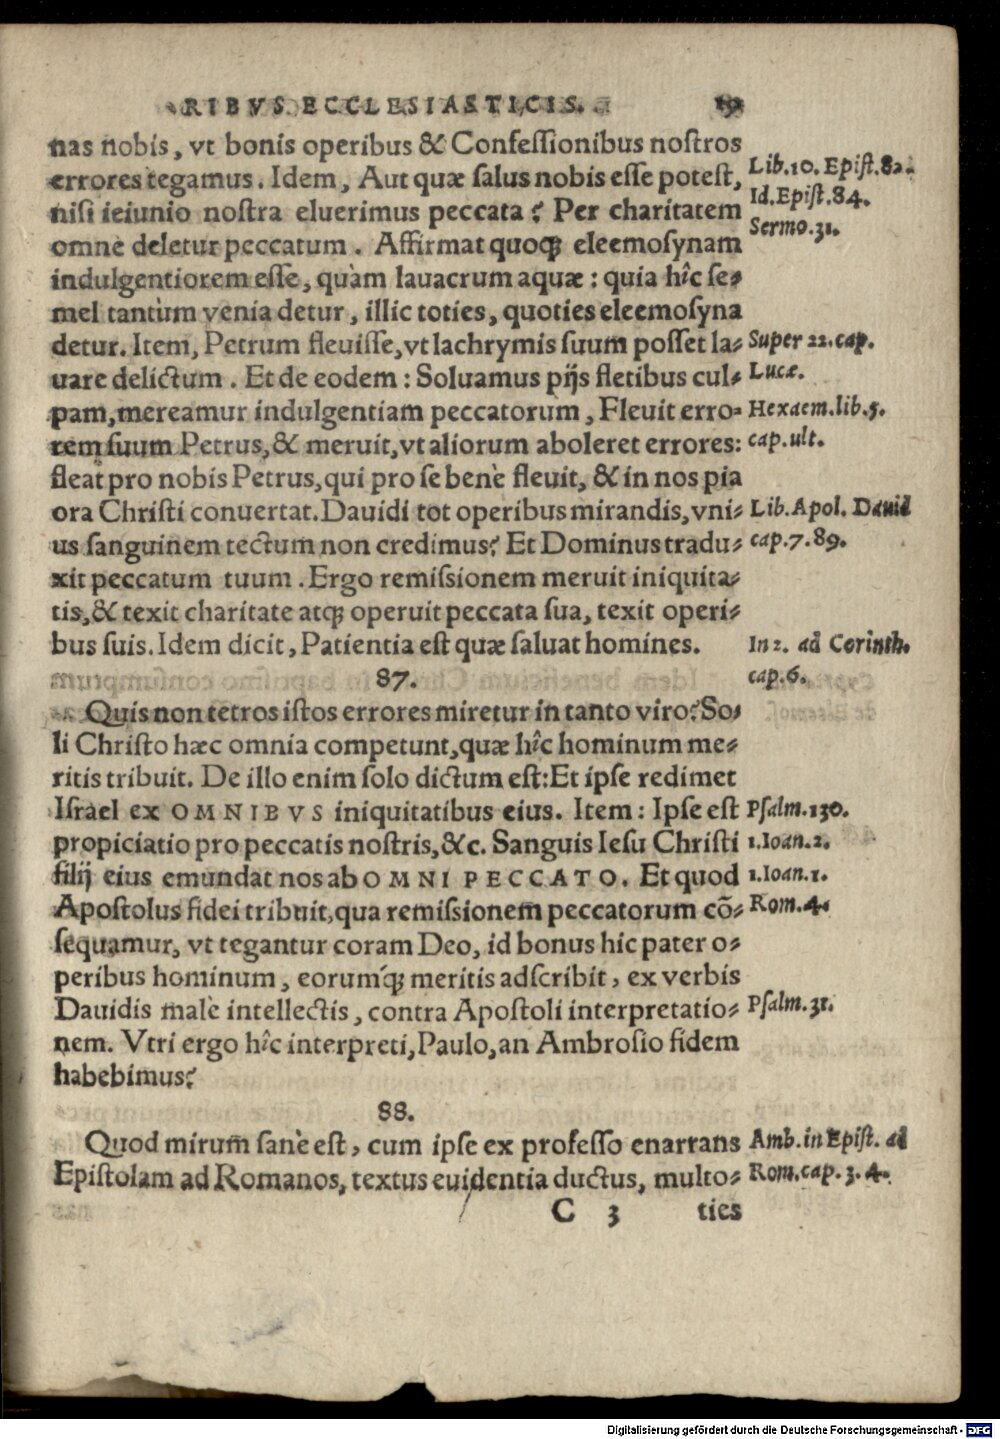 RIBVS ECCLESIASTICIS. 19
nas nobis, vt bonis operibus & Confeſſionibus noſtros
errores tegamus. Idem, Aut quæ ſalus nobis eſſe poteſt,
Lib.10. Epiſt.82.
niſi ieiunio noſtra eluerimus peccata? Per charitatem
Id.Epiſt.84.
omne deletur peccatum. Affirmat quoq; eleemoſynam
Sermo.31.
indulgentiorem eſſe, quàm lauacrum aquæ: quia hîc ſe-
mel tantùm venia detur, illic toties, quoties eleemoſyna
detur. Item, Petrum fleuiſſe, vt lachrymis ſuum poſſet la-
Super 22.cap.
uare delictum. Et de eodem: Soluamus pijs fletibus cul-
Lucæ.
pam, mereamur indulgentiam peccatorum, Fleuit erro-
Hexaem.lib.5.
rem ſuum Petrus, & meruit, vt aliorum aboleret errores:
cap.ult.
fleat pro nobis Petrus, qui pro ſe benè fleuit, & in nos pia
ora Chriſti conuertat. Dauidi tot operibus mirandis, vni-
Lib. Apol. Dauid
us ſanguinem tectum non credimus? Et Dominus tradu-
cap.7.89.
xit peccatum tuum. Ergo remiſsionem meruit iniquita-
tis, & texit charitate atq; operuit peccata ſua, texit operi-
bus ſuis. Idem dicit, Patientia eſt quæ ſaluat homines.
In 2. ad Corinth.
cap.6.
87.
Quis non tetros iſtos errores miretur in tanto viro? So-
li Chriſto hæc omnia competunt, quæ hîc hominum me-
ritis tribuit. De illo enim ſolo dictum eſt: Et ipſe redimet
Iſrael ex OMNIBVS iniquitatibus eius. Item: Ipſe eſt
Pſalm.130.
propiciatio pro peccatis noſtris, &c. Sanguis Ieſu Chriſti
1.Ioan.2.
filij eius emundat nos ab OMNI PECCATO. Et quod
1.Ioan.1.
Apoſtolus fidei tribuit, qua remiſsionem peccatorum cō-
Rom.4.
ſequamur, vt tegantur coram Deo, id bonus hic pater o-
peribus hominum, eorumq́; meritis adſcribit, ex verbis
Dauidis malè intellectis, contra Apoſtoli interpretatio-
Pſalm.31.
nem. Vtri ergo hîc interpreti, Paulo, an Ambroſio fidem
habebimus?
88.
Quod mirum ſanè eſt, cum ipſe ex profeſſo enarrans
Amb. in Epiſt. ad
Epiſtolam ad Romanos, textus euidentia ductus, multo-
Rom.cap.3.4.
C 3 ties
Digitalisierung gefördert durch die Deutsche Forschungsgemeinschaft - DFG